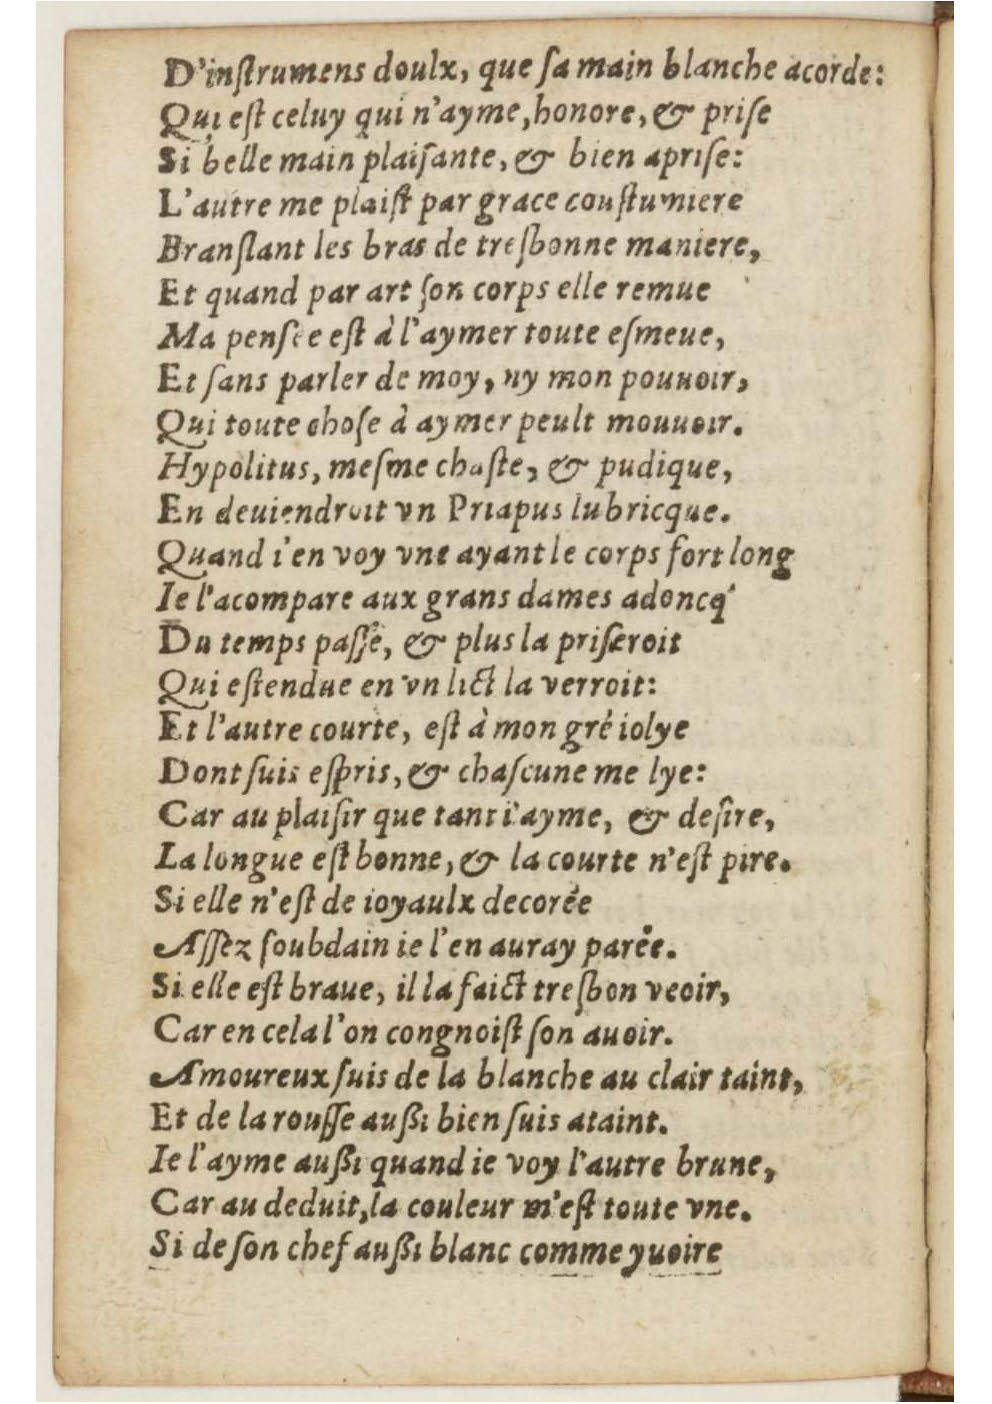 D'inſtrumens doulx, que ſa main blanche acorde:
Qui eſt celuy qui n'ayme, honore, & priſe
Si belle main plaiſante, & bien apriſe:
L'autre me plaiſt par grace couſtumiere
Branſlant les bras de treſbonne maniere,
Et quand par art ſon corps elle remue
Ma penſee eſt à l'aymer toute eſmeue,
Et ſans parler de moy, ny mon pouuoir,
Qui toute choſe à aymer peult mouuoir.
Hypolitus, meſme chaſte, & pudique,
En deuiendroit vn Priapus lubricque.
Quand i'en voy vne ayant le corps fort long
Ie l'acompare aux grans dames adoncq'
Du temps paſſé, & plus la priſeroit
Qui eſtendue en vn lict la verroit:
Et l'autre courte, eſt à mon gré iolye
Dont ſuis eſpris, & chaſcune me lye:
Car au plaiſir que tant i'ayme, & deſire,
La longue eſt bonne, & la courte n'eſt pire.
Si elle n'eſt de ioyaulx decorée
Aſſez ſoubdain ie l'en auray parée.
Si elle eſt braue, il la faict treſbon veoir,
Car en cela l'on congnoiſt ſon auoir.
Amoureux ſuis de la blanche au clair taint,
Et de la rouſſe außi bien ſuis ataint.
Ie l'ayme außi quand ie voy l'autre brune,
Car au deduit, la couleur m'eſt toute vne.
Si de ſon chef außi blanc comme yuoire